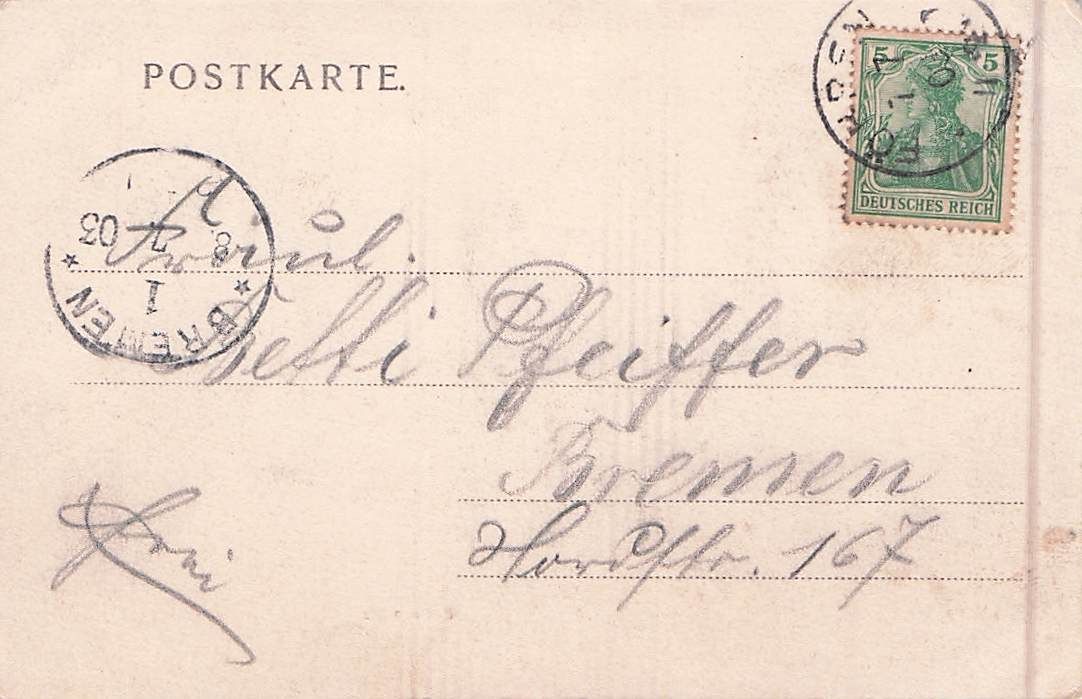 POSTKARTE.
5 5
DEUTSCHES REICH
BREMEN
1
8 7 03
Fräul.
Betti Pfeiffer
Bremen
Nordstr. 167
Frei